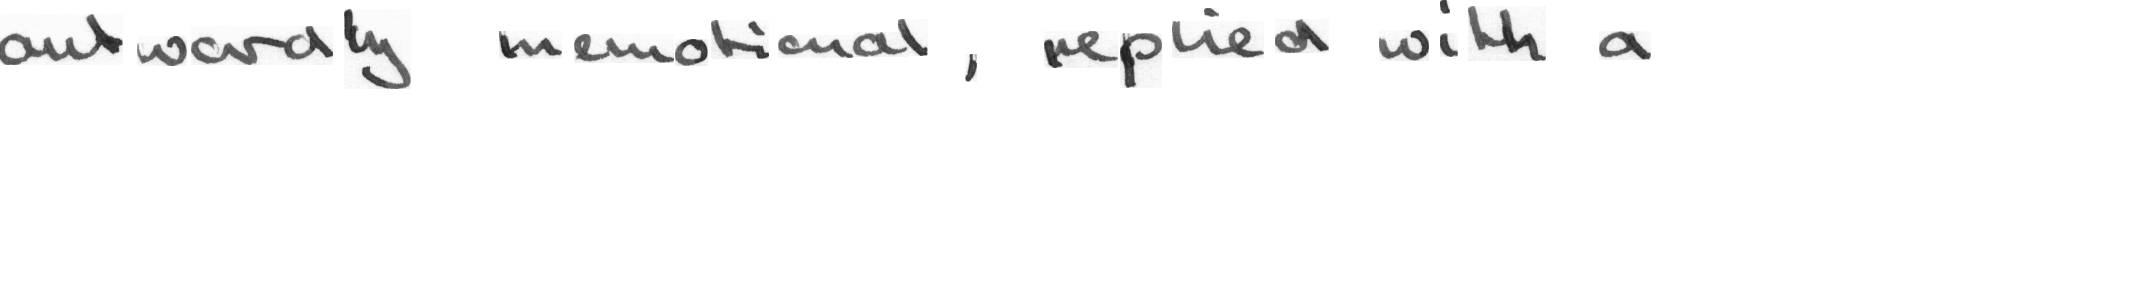 outwardly unemotional, replied with a